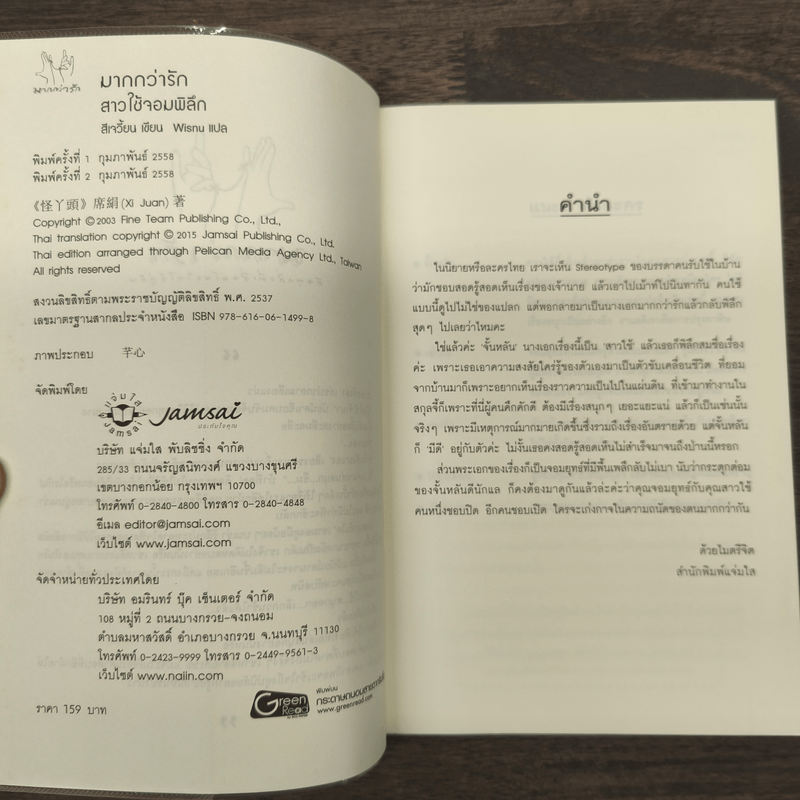 มากกว่ารัก
มากกว่ารัก
สาวใช้จอมพิลึก
สีเจวี้ยน เขียน Wisnu แปล
พิมพ์ครั้งที่ 1 กุมภาพันธ์ 2558
พิมพ์ครั้งที่ 2 กุมภาพันธ์ 2558
《怪丫頭》席絹 (Xi Juan) 著
Copyright ©2003 Fine Team Publishing Co., Ltd.,
Thai translation copyright © 2015 Jamsai Publishing Co., Ltd.
Thai edition arranged through Pelican Media Agency Ltd., Taiwan
All rights reserved
สงวนลิขสิทธิ์ตามพระราชบัญญัติลิขสิทธิ์ พ.ศ. 2537
เลขมาตรฐานสากลประจำหนังสือ ISBN 978-616-06-1499-8
ภาพประกอบ 芊心
จัดพิมพ์โดย
แจ่มใส
JAMSAI
Jamsai
ประทับใจคุณ
บริษัท แจ่มใส พับลิชชิ่ง จำกัด
285/33 ถนนจรัญสนิทวงศ์ แขวงบางขุนศรี
เขตบางกอกน้อย กรุงเทพฯ 10700
โทรศัพท์ 0-2840-4800 โทรสาร 0-2840-4848
อีเมล editor@jamsai.com
เว็บไซต์ www.jamsai.com
จัดจำหน่ายทั่วประเทศโดย
บริษัท อมรินทร์ บุ๊ค เซ็นเตอร์ จำกัด
108 หมู่ที่ 2 ถนนบางกรวย-จงถนอม
ตำบลมหาสวัสดิ์ อำเภอบางกรวย จ.นนทบุรี 11130
โทรศัพท์ 0-2423-9999 โทรสาร 0-2449-9561-3
เว็บไซต์ www.naiin.com
ราคา 159 บาท
Green
Read
พิมพ์บน
กระดาษถนอมสายตากรีนรี้ด
www.greenread.com
คำนำ
ในนิยายหรือละครไทย เราจะเห็น Stereotype ของบรรดาคนรับใช้ในบ้าน
ว่ามักชอบสอดรู้สอดเห็นเรื่องของเจ้านาย แล้วเอาไปเม้าท์ไปนินทากัน คนใช้
แบบนี้ดูไปไม่ใช่ของแปลก แต่พอกลายมาเป็นนางเอกมากกว่ารักแล้วกลับพิลึก
สุดๆ ไปเลยว่าไหมคะ
ใช่แล้วค่ะ ‘จั้นหลัน’ นางเอกเรื่องนี้เป็น ‘สาวใช้’ แล้วเธอก็พิลึกสมชื่อเรื่อง
ค่ะ เพราะเธอเอาความสงสัยใคร่รู้ของตัวเองมาเป็นตัวขับเคลื่อนชีวิต ที่ยอม
จากบ้านมาก็เพราะอยากเห็นเรื่องราวความเป็นไปในแผ่นดิน ที่เข้ามาทำงานใน
สกุลจี้ก็เพราะที่นี่ผู้คนคึกคักดี ต้องมีเรื่องสนุกๆ เยอะแยะแน่ แล้วก็เป็นเช่นนั้น
จริงๆ เพราะมีเหตุการณ์มากมายเกิดขึ้นซึ่งรวมถึงเรื่องอันตรายด้วย แต่จั้นหลัน
ก็ ‘มีดี’ อยู่กับตัวค่ะ ไม่งั้นเธอคงสอดรู้สอดเห็นไม่สำเร็จมาจนถึงป่านนี้หรอก
ส่วนพระเอกของเรื่องก็เป็นจอมยุทธ์ที่มีพื้นเพลึกลับไม่เบา นับว่ากระตุกต่อม
ของจั้นหลันดีนักแล ก็คงต้องมาดูกันแล้วล่ะค่ะว่าคุณจอมยุทธ์กับคุณสาวใช้
คนหนึ่งชอบปิด อีกคนชอบเปิด ใครจะเก่งกาจในความถนัดของตนมากกว่ากัน
ด้วยไมตรีจิต
สำนักพิมพ์แจ่มใส